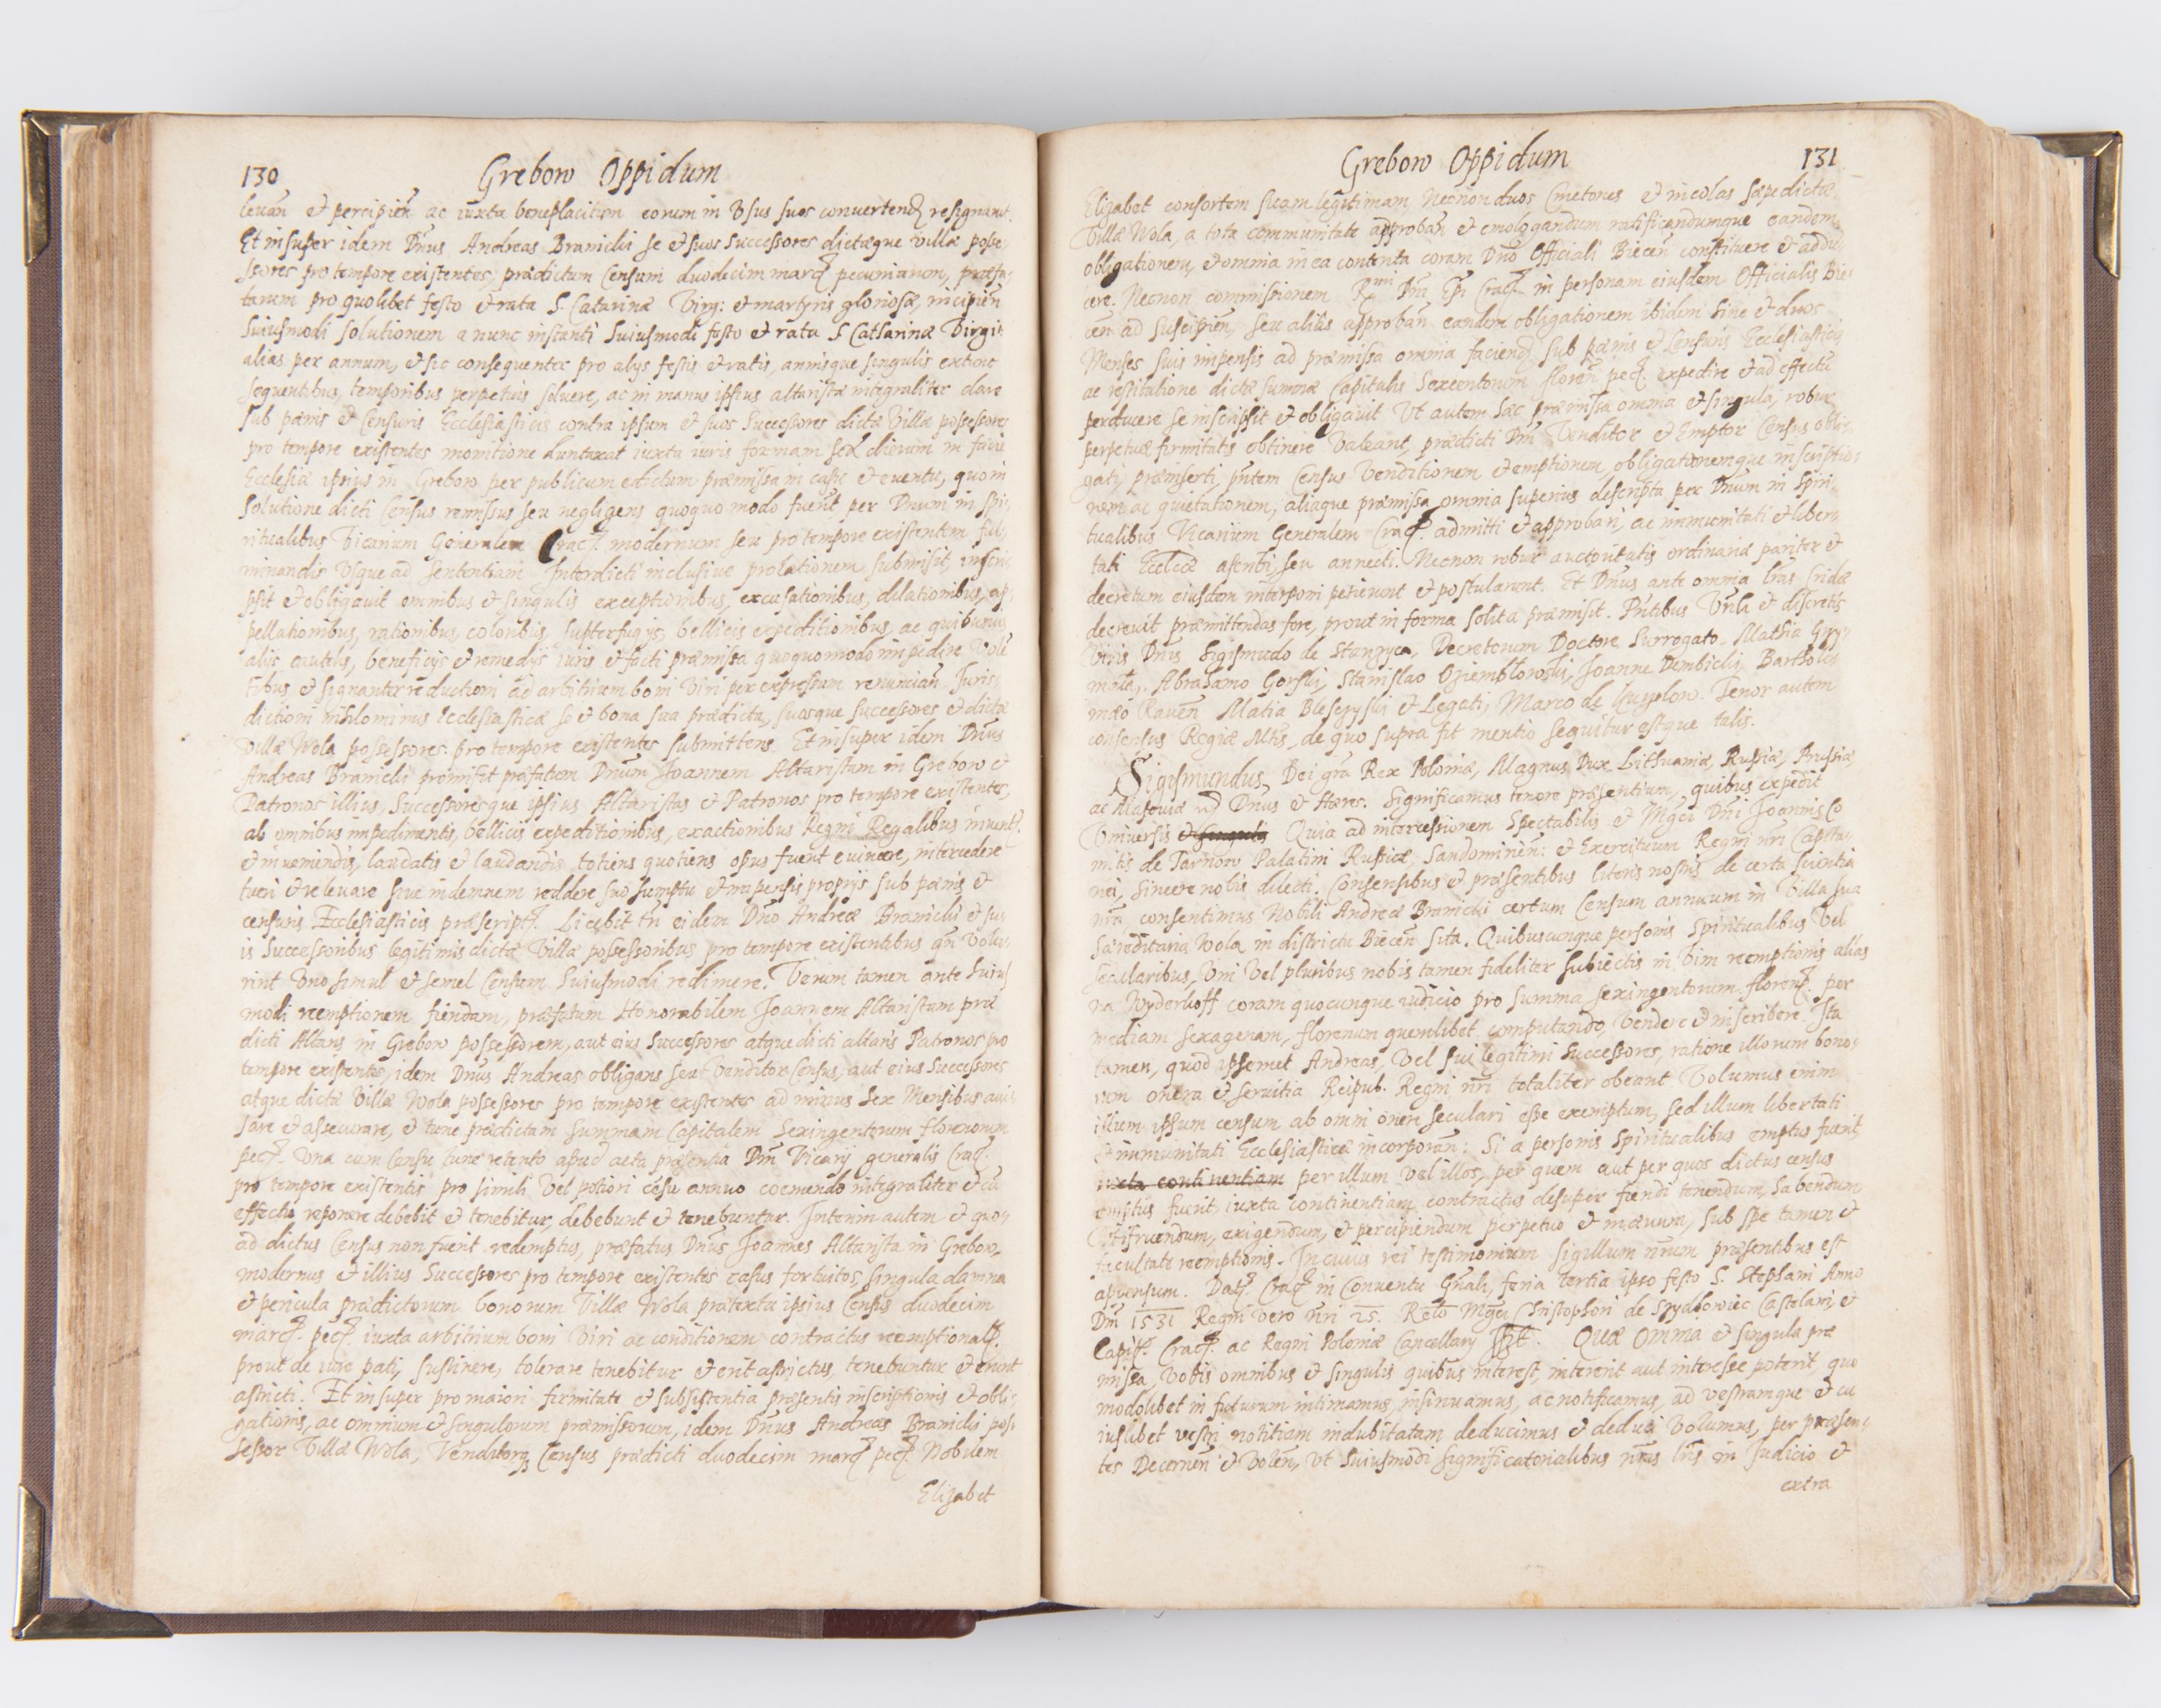 130 Grebow Oppidum
levan̄ et percipien̄ ac iuxta beneplacitum eorum in Usus suos convertend resignavit.
Et insuper idem Dn̄us Andreas Branicki se et suos Successores dictæque villæ posse-
ssores pro tempore existentes, prædictum Censum duodecim marcȩ pecuniarum, præfa-
tarum pro quolibet festo et rata S. Catarinæ Virg: et martyris gloriosæ, incipien̄
huiusmodi solutionem a nunc instanti huiusmodi festo et rata S Catharinæ Virgi:
alias per annum, et sic consequenter pro alys festis et ratis, annisque singulis extunc
sequentibus, temporibus perpetuis solvere, ac in manus ipsius altaristæ integraliter dare
sub pænis et Censuris Ecclesiasticis contra ipsum et suos Successores dictæ Villæ possessores
pro tempore existentes monitione duntaxat iuxta iuris formam sex dierum in facie
Ecclesiæ ipsius in Grebow per publicum edictum præmissa in casu et eventu, quo in
solutione dicti Census remissus seu negligens quoquo modo fuerit per Dnum in spi-
ritualibus Vicarium Generalem Crac. modernum seu pro tempore existentem ful-
minandis Usque ad sententiam Interdicti inclusive prolationem submisit, inscri-
psit et obligavit omnibus et singulis exceptionibus, excusationibus, dilationibus, ap-
pellationibus, rationibus, coloribus, supterfugys, bellicis expeditionibus, ac quibusvis
alys cautelis, beneficys et remedys iuris et facti præmissa quoquomodo impedire Vole
tibus et signanter reductioni ad arbitrium boni Viri per expressum renuncian̄ Juris-
dictioni nihilominus Ecclesiasticæ se et bona sua prædicta, suosque successores et dictæ
Villæ Wola possessores pro tempore existentes submittens. Et insuper idem Dn̄us
Andreas Branicki promisit præfatum Dnum Joannem Altaristam in Grebow et
Patronos illius, Successoresque ipsius Altaristas et Patronos pro tempore existentes,
ab omnibus impedimentis, bellicis expeditionibus, exactionibus Regni Regalibus invent.
et inveniendis, laudatis et laudandis totiens quotiens opus fuerit evincere, intercedere
tueri et relevare sive indemnem reddere suo sumptu et impensis proprys sub pænis et
censuris Ecclesiasticis præscript. Licebit tn̄ eidem Dno Andreæ Branicki et su-
is Successoribus legitimis dictæ Villæ possessoribus pro tempore existentibus qn̄ Volue-
rint Uno simul et semel Censum huiusmodi redimere. Verum tamen ante huius
modi reemptionem fiendam, præfatum Honorabilem Joannem Altaristam præ
dicti Altaris in Grebow possessorem, aut eius Successores atque dicti altaris Patronos pro
tempore existentes, idem Dn̄us Andreas obligans seu Venditor Census, aut eius Successores
atque dictæ Villæ Wola possessores pro tempore existentes ad minus sex Mensibus avi-
sare et assecurare, et tunc prædictam summam Capitalem Sexingentorum florenorum
pec. Una cum Censu tunc retento apud acta præsentia Dn̄i Vicary generalis Crac.
pro tempore existentis pro simili Vel potiori cēsu annuo coemendo integraliter et cū
effectu reponere debebit et tenebitur, debebunt et tenebuntur. Interim autem et quo-
ad dictus Census non fuerit redemptus, præfatus Dn̄us Joannes Altarista in Grebow
modernus et illius Successores pro tempore existentes casus fortuitos, singula damna
et pericula prædictorum bonorum Villæ Wola prætextu ipsius Census duodecim
marc. pec. iuxta arbitrium boni Viri ac conditionem contractus reemptional.
prout de iure pati, sustinere, tolerare tenebitur et erit astrictus, tenebuntur et erunt
astricti. Et insuper pro maiori firmitate et subsistentia præsentis inscriptionis et obli-
gationis, ac omnium et singulorum præmissorum, idem Dn̄us Andreas Branicki pos-
sessor Villæ Wola, Venditorq Census prædicti duodecim marc pec. Nobilem
Elizabet
Grebow Oppidum 131
Elizabet consortem suam legitimam, Necnon duos Cmetones et incolas sæpedictæ
Villæ Wola, a tota communitate approban̄ et emologandum ratificandumque eandem
obligationem, et omnia in ea contenta coram Dn̄o Officiali Biecen̄ constituere et addu-
cere. Necnon commissionem Rmi Dn̄i Epi Crac. in personam eiusdem Officialis Bie-
cen̄ ad suscipien̄, seu alias approban̄ eandem obligationem ibidem hinc et duos
Menses suis impensis ad præmissa omnia faciend sub pænis et Censuris Ecclesiasticis
ac restitutione dictæ summæ Capitalis Sexcentorum floren̄ pec. expedire et ad effectū
perducere se inscripsit et obligavit Ut autem hæc præmissa omnia et singula, robur
perpetuæ firmitatis obtinere Valeant, prædicti Dn̄i Venditor et Emptor Census obli-
gati, præinserti, pn̄tem Census Venditionem et emptionem, obligationemque inscriptio-
nem ac quietationem, aliaque præmissa omnia superius descripta per Dnum in Spiri-
tualibus Vicarium Generalem Crac. admitti et approbari, ac immunitati et liber-
tati Eccl̄iæ ascribi, seu annecti. Necnon robur auctoritatis ordinariæ pariter et
decretum eiusdem interponi petierunt et postularunt. Et Dn̄us ante omnia lr̄as cridæ
decrevit præmittendas fore, prout in forma solita præmisit. Pn̄tibus Vn̄li et discretis
Viris Dn̄is Sigismudo de Stanzyca, Decretorum Doctore Surrogato. Mathia
Abrahamo Gorski, Stanislao Joanne Dembicki, Bartholo-
mæo Raven̄ Matia et Legati, Marco de Tenor autem
consensus Regiæ Mtis, de quo supra fit mentio sequitur estque talis.
Sigismundus, Dei gr̄a Rex Poloniæ, Magnus Dux Lithuaniæ, Russiæ, Prussiæ
ac Masoviæ Dn̄us et Hæres. Significamus tenore præsentium, quibus expedit
Universis et singulis Quia ad intercessionem Spectabilis et Mgci Dn̄i Joannis Co
mitis de Tarnow Palatini Russiæ, Sandominien̄: et Exercituum Regni nr̄i Capita-
nei, sincere nobis dilecti. Consensibus et præsentibus literis nostris de certa scientia
nr̄a consentimus Nobili Andreæ Branicki certum Censum annuum in Villa sua
hæreditaria Wola in districtu Biecen̄ sita. Quibuscunque personis Spiritualibus Vel
Secularibus, Uni Vel pluribus nobis tamen fideliter subiectis in Vim reemptionis alias
na Wyderkoff coram quocunque iudicio pro summa sexingentorum floren. per
mediam sexagenam, florenum quemlibet computando, Vendere et inscribere. Ita
tamen, quod ipsemet Andreas, Vel sui legitimi Successores, ratione illorum bono-
rum onera et servitia Reipub. Regni nr̄i totaliter obeant Volumus enim
illum ipsum censum ab omni onere seculari esse exemptum, sed illum libertati
et immunitati Ecclesiasticæ incorporan̄: Si a personis Spiritualibus emptus fuerit,
iuxta continentiam per illum vel illos, per quem aut per quos dictus census
emptus fuerit, iuxta continentiam contractus desuper fiendi tenendum, habendum
Utifruendum, exigendum, et percipiendum perpetuo et in ævum, sub spe tamen et
facultate reemptionis. In cuius rei testimonium sigillum nr̄um præsentibus est
apensum. Dat. Crac. in Conventu Gn̄ali, feria tertia ipso festo S. Stephani Anno
Dn̄i 1531 Regni vero nr̄i 25. Relo Mgci Christophori de Szydlowiec Castelani, et
Capit. Crac. ac Regni Poloniæ Cancellary Quæ Omnia et singula præ
missa Vobis omnibus et singulis quibus interest, intererit aut interesse poterit, quo
modolibet in futurum intimamus, insinuamus, ac notificamus, ad vestramque et cu
iuslibet vestri notitiam indubitatam deducimus et deduci Volumus, per præsen-
tes Decernen̄ et Volen̄, Ut huiusmodi significatorialibus nr̄is lr̄is in Judicio et
extra